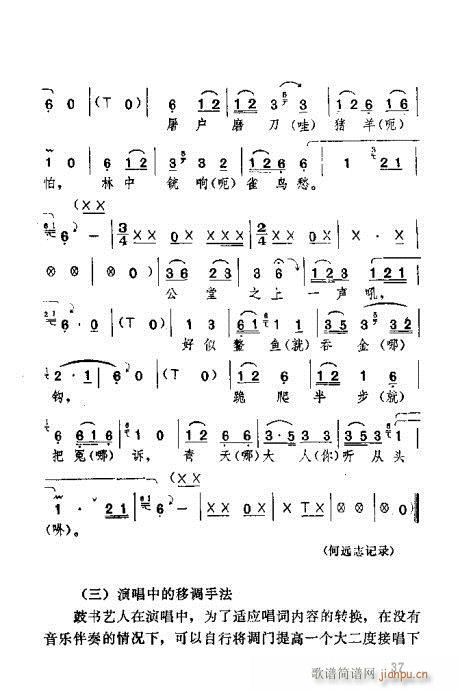 6 0 | (T 0) | 6 1 2 | 1 2 3 3 | 1 2 1 6 |
屠户磨刀(哇)猪羊(呃)
1 0 | 6 1 2 | 1 2 3 5 | 6 1 | 1 2 1 |
怕， 林中铳响(呃)雀鸟愁。
(X X
6 - | 3/4 X X X X 0 X | 2/4 X X 0 X |
⊗ ⊗ | ⊗ 0) | 3 6 2 3 | 3 6 | 1 2 3 1 2 1 |
公堂之上一声吼，
6 · 0 | (T 0) | 1 3 | 6 1 1 2 | 3 5 3 3 2 |
好似鳌鱼(就)吞金(哪)
2 · 1 | 6 0 | (T 0) | 1 2 6 | 1 2 6 |
钩， 跪爬半步(就)
6 6 1 6 | 1 0 | 6 1 2 1 2 | 3 · 5 3 | 3 5 3 3 1 |
把冤(哪)诉， 青天(哪)大人(你)听从头
(X X
1 · 2 1 | 6 - | X X 0 X | X T X | ⊗ ⊗ | ⊗ 0)
(咻)。
(何远志记录)
(三) 演唱中的移调手法
鼓书艺人在演唱中，为了适应唱词内容的转换，在没有
音乐伴奏的情况下，可以自行将调门提高一个大二度接唱下
37
歌谱简谱网
jianpu.cn